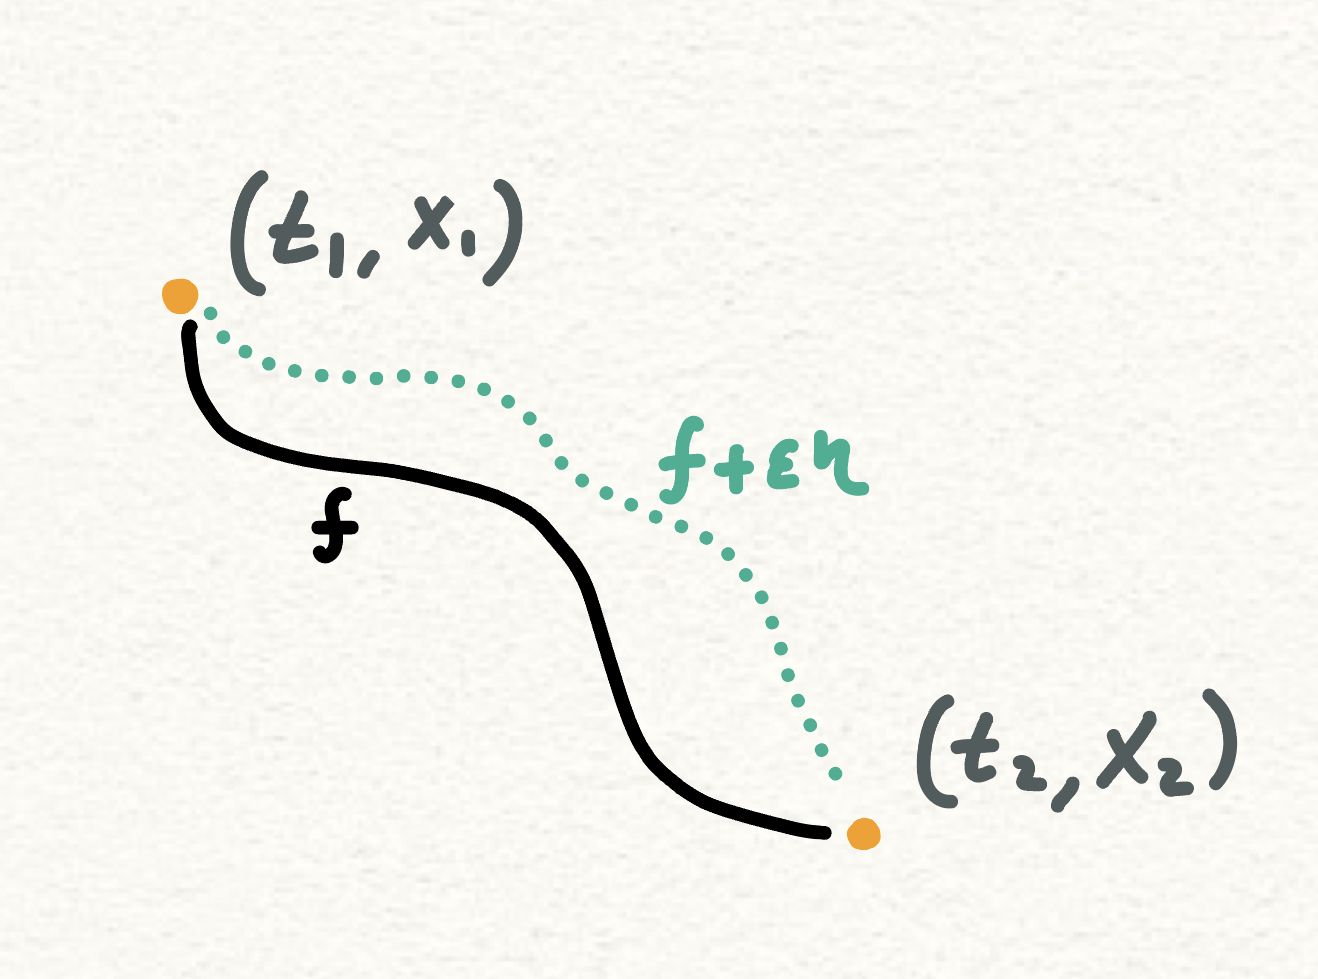 (t₁, x₁)
f+εη
f
(t₂, x₂)